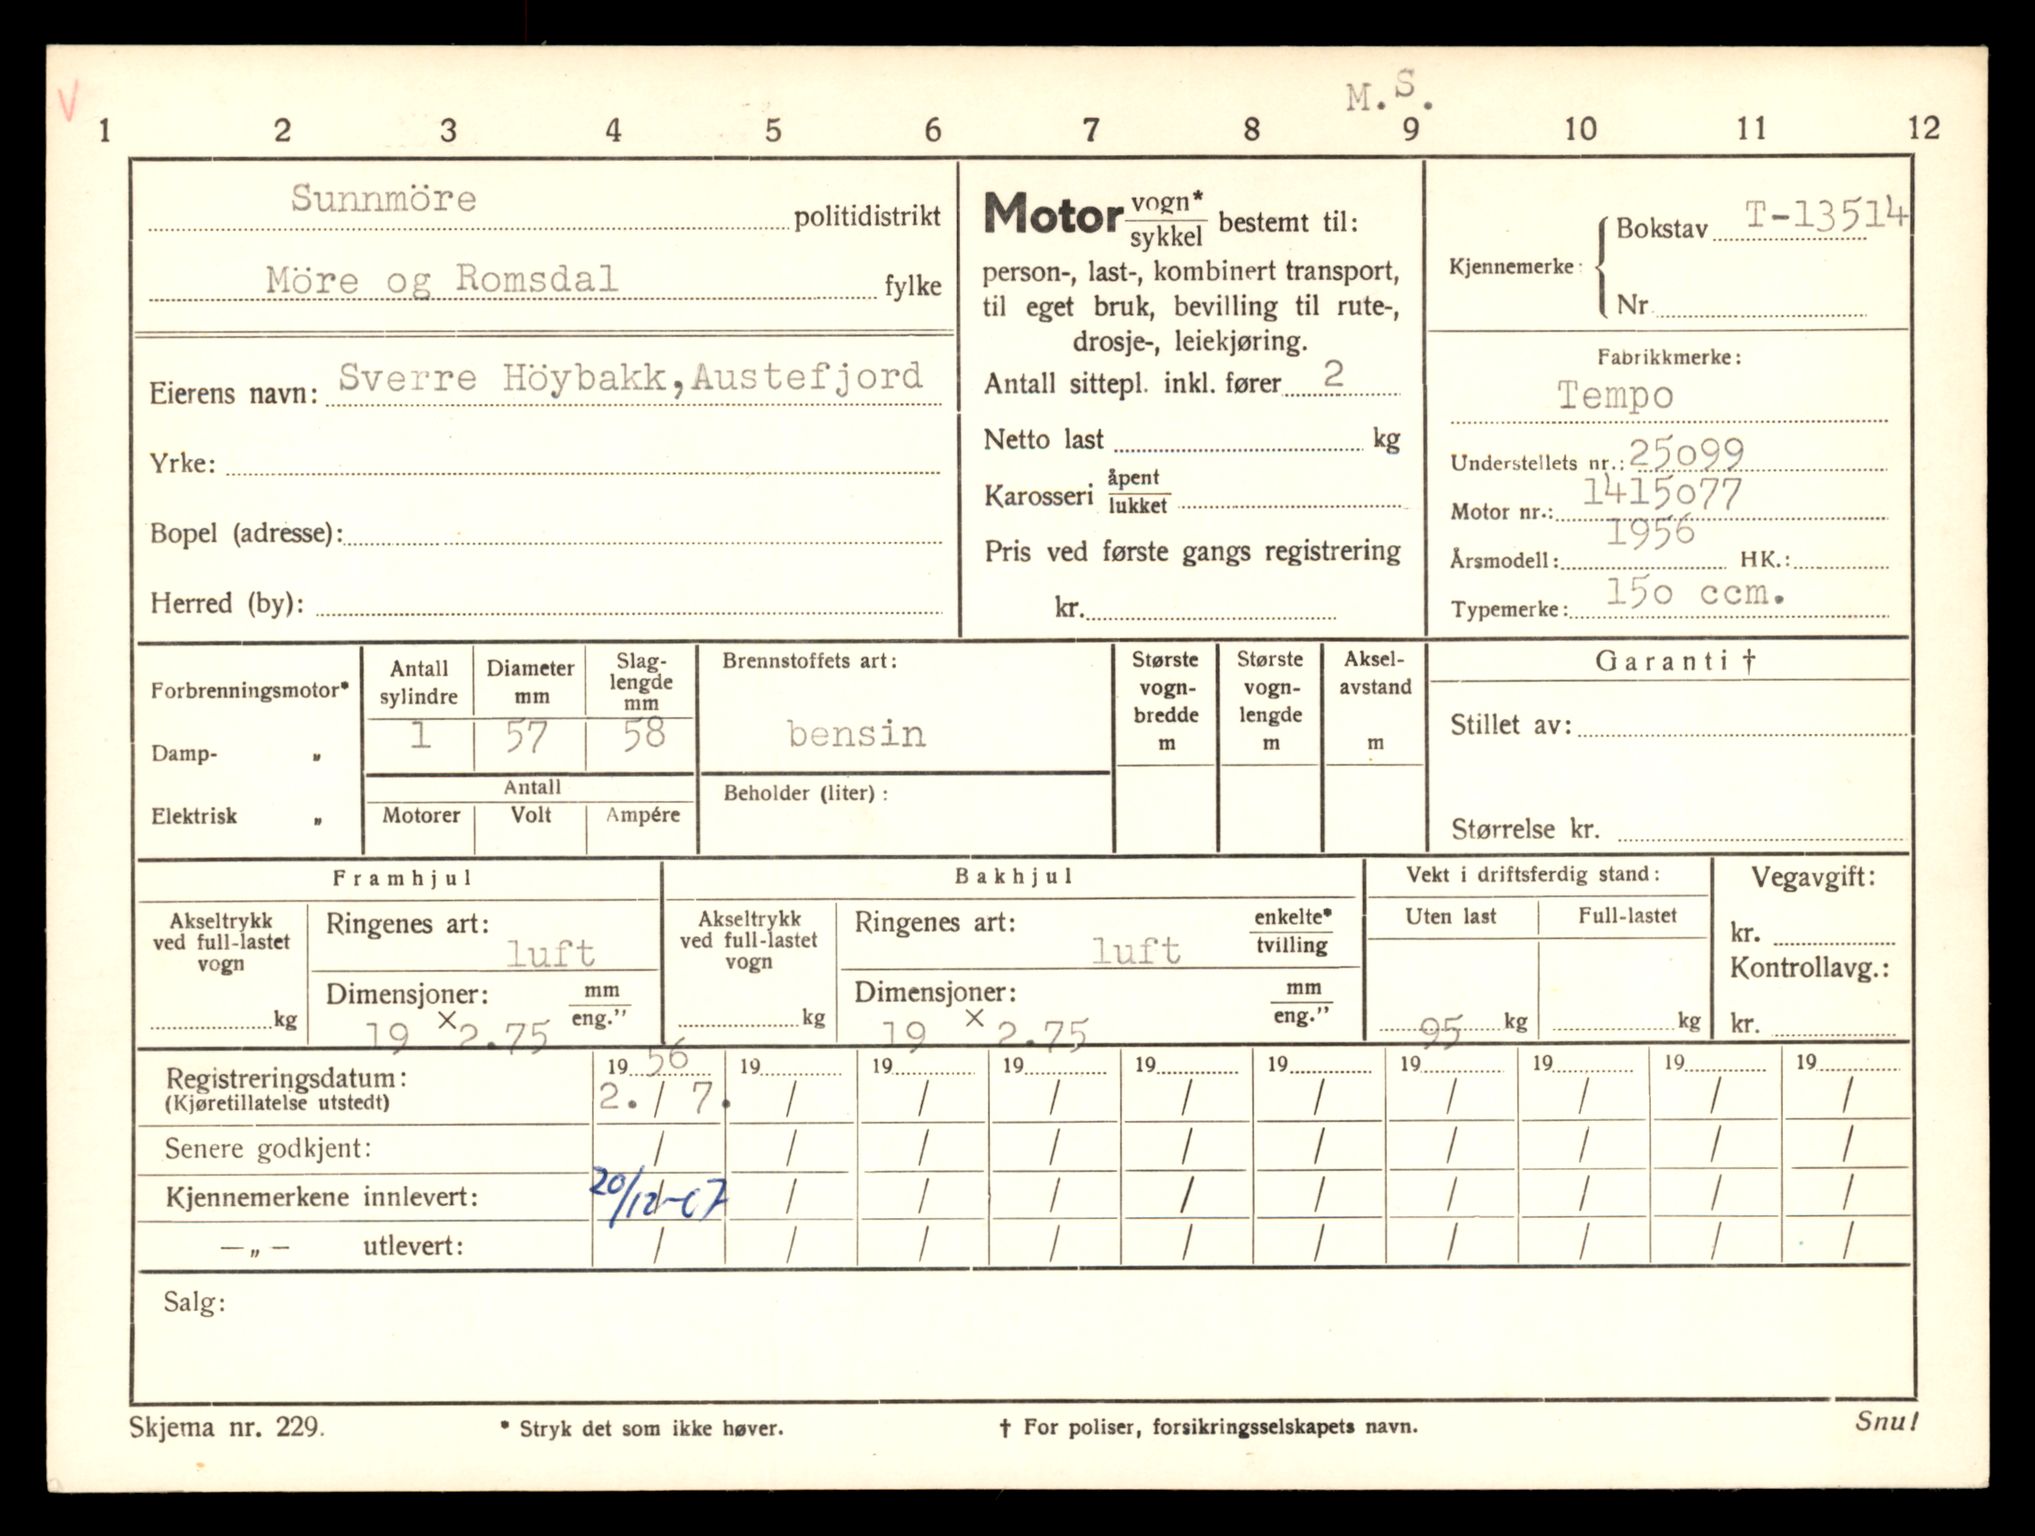 V
M.S.
1 2 3 4 5 6 7 8 9 10 11 12
Sunnmöre politidistrikt
Möre og Romsdal fylke
Eierens navn: Sverre Höybakk, Austefjord
Yrke:
Bopel (adresse):
Herred (by):
Motor vogn* / sykkel bestemt til:
person-, last-, kombinert transport,
til eget bruk, bevilling til rute-,
drosje-, leiekjøring.
Antall sittepl. inkl. fører 2
Netto last kg
Karosseri åpent / lukket
Pris ved første gangs registrering
kr.
Kjennemerke: Bokstav T-13514
Nr.
Fabrikkmerke:
Tempo
Understellets nr.: 25099
Motor nr.: 1415077
Årsmodell: 1956 HK.:
Typemerke: 150 ccm.
Forbrenningsmotor*
Damp- „
Elektrisk „
Antall sylindre 1
Diameter mm 57
Slag-lengde mm 58
Antall
Motorer Volt Ampére
Brennstoffets art:
bensin
Beholder (liter):
Største vogn-bredde m
Største vogn-lengde m
Aksel-avstand m
Garanti †
Stillet av:
Størrelse kr.
Framhjul
Akseltrykk ved full-lastet vogn
kg
Ringenes art:
luft
Dimensjoner: mm / eng."
19 × 2.75
Bakhjul
Akseltrykk ved full-lastet vogn
kg
Ringenes art: enkelte* / tvilling
luft
Dimensjoner: mm / eng."
19 × 2.75
Vekt i driftsferdig stand:
Uten last Full-lastet
95 kg kg
Vegavgift:
kr.
Kontrollavg.:
kr.
19 56 19 19 19 19 19 19 19 19 19
Registreringsdatum: 2. / 7. / / / / / / / / /
(Kjøretillatelse utstedt)
Senere godkjent: / / / / / / / / / /
Kjennemerkene innlevert: 20/12-67 / / / / / / / / /
— „ — utlevert: / / / / / / / / / /
Salg:
Skjema nr. 229. * Stryk det som ikke høver. † For poliser, forsikringsselskapets navn. Snu!